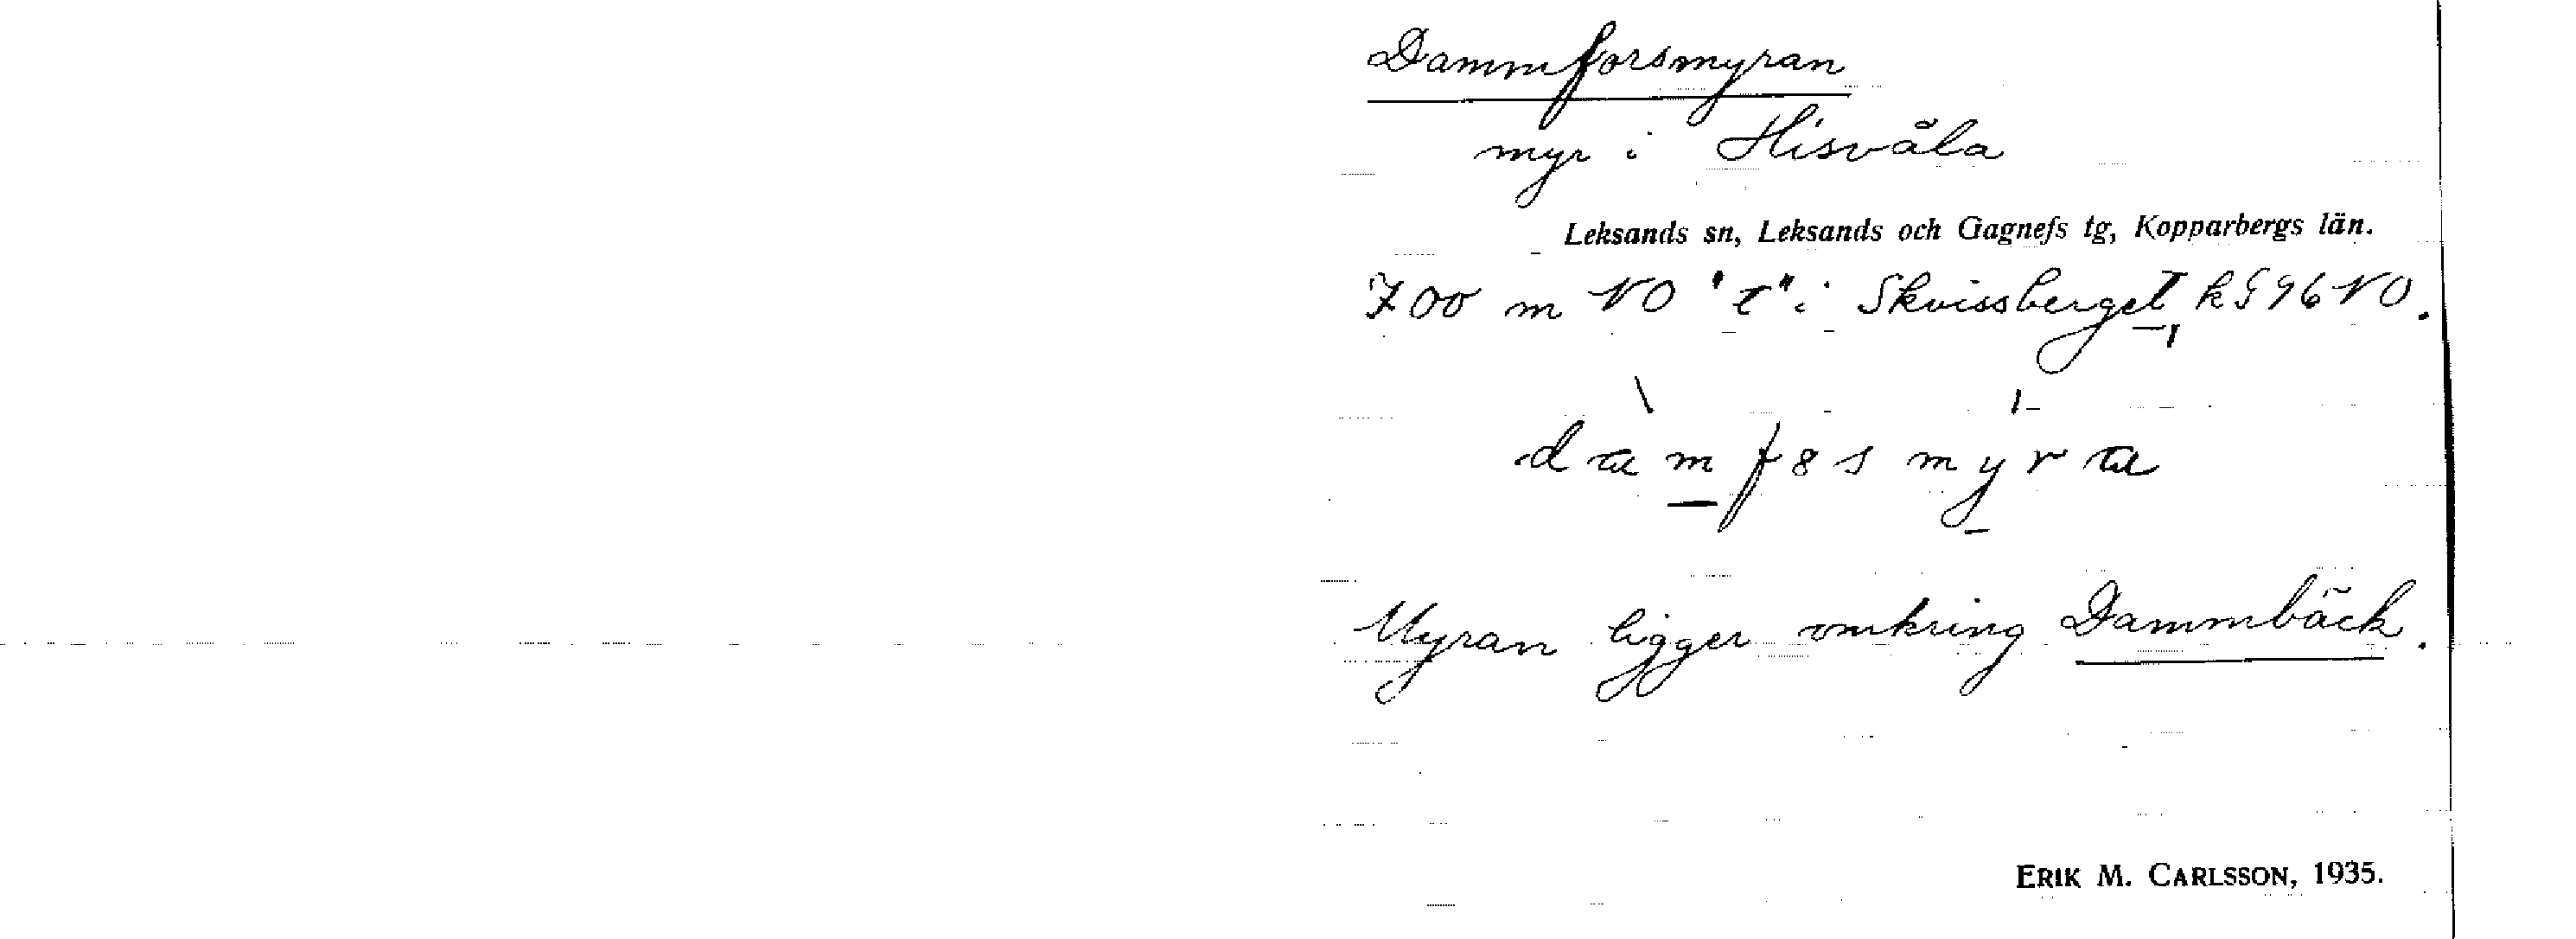 Dammforsmyran
myr i Hisvåla
Leksands sn, Leksands och Gagnefs tg, Kopparbergs län.
700 m NO "t" i Skvissberget k§96NO.
damfo̤smyra
Myran ligger omkring Dammbäck.
ERIK M. CARLSSON, 1935.